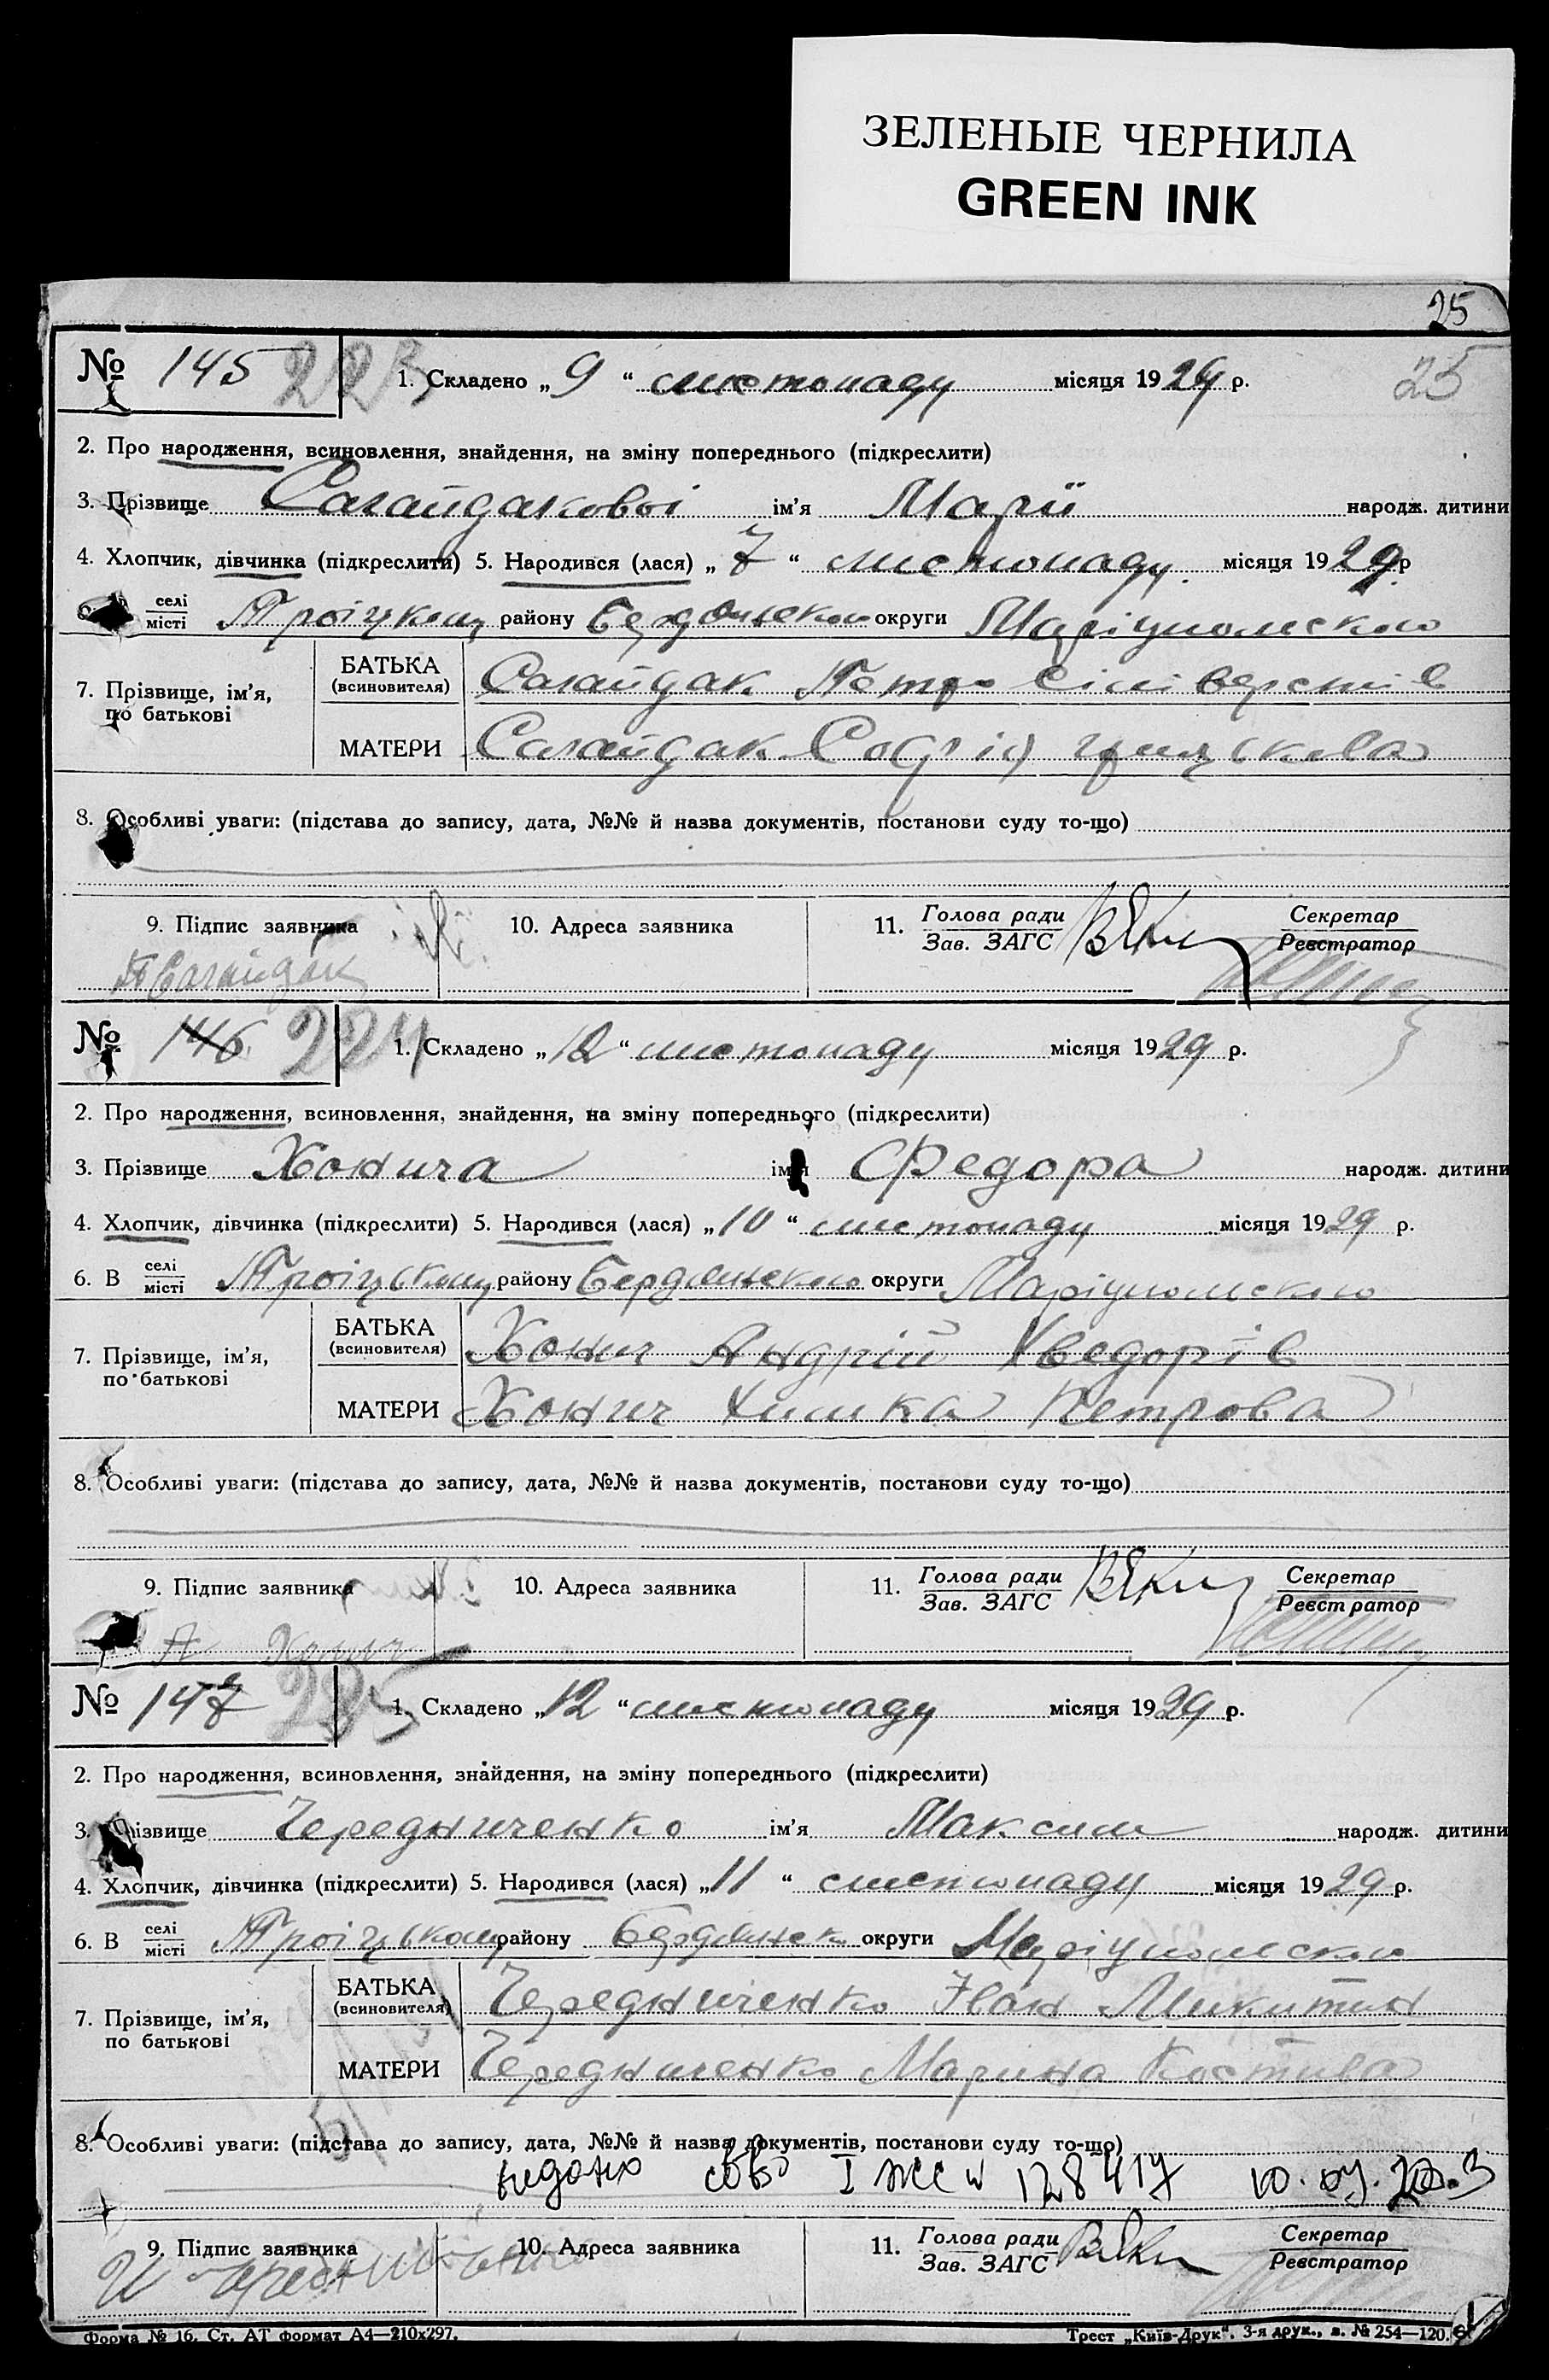 ЗЕЛЕНЫЕ ЧЕРНИЛА
GREEN INK
25
№ 145 223 1. Складено „ 9 “ листопаду місяця 1929 р. 25
2. Про народження, всиновлення, знайдення, на зміну попереднього (підкреслити)
3. Прізвище Сагайдакової ім'я Марії народж. дитини
4. Хлопчик, дівчинка (підкреслити) 5. Народився (лася) „ 7 “ листопаду місяця 1929 р
селі
місті Троіцкому району Бердянського округи Маріупольского
7. Прізвище, ім'я, по батькові
БАТЬКА (всиновителя) Сагайдак Петро Сіліверстів
МАТЕРИ Сагайдак Софія
8. Особливі уваги: (підстава до запису, дата, №№ й назва документів, постанови суду то-що)
9. Підпис заявника 10. Адреса заявника 11. Голова ради Секретар
Зав. ЗАГС Реєстратор
П Сагайдак
№ 146 224 1. Складено „ 12 “ листопаду місяця 1929 р.
2. Про народження, всиновлення, знайдення, на зміну попереднього (підкреслити)
3. Прізвище Хонича ім'я Федора народж. дитини
4. Хлопчик, дівчинка (підкреслити) 5. Народився (лася) „ 10 “ листопаду місяця 1929 р.
6. В селі
місті Троіцькому району Бердянського округи Маріупольского
7. Прізвище, ім'я, по батькові
БАТЬКА (всиновителя) Хонич Андрій Хведорів
МАТЕРИ Хонич Химка Петрова
8. Особливі уваги: (підстава до запису, дата, №№ й назва документів, постанови суду то-що)
9. Підпис заявника 10. Адреса заявника 11. Голова ради Секретар
Зав. ЗАГС Реєстратор
А Хонич
№ 147 225 1. Складено „ 12 “ листопаду місяця 1929 р.
2. Про народження, всиновлення, знайдення, на зміну попереднього (підкреслити)
3. Прізвище Чередниченко ім'я Максим народж. дитини
4. Хлопчик, дівчинка (підкреслити) 5. Народився (лася) „ 11 “ листопаду місяця 1929 р.
6. В селі
місті Троіцькому району Бердянськ округи Маріупольского
7. Прізвище, ім'я, по батькові
БАТЬКА (всиновителя) Чередниченко Іван Микитин
МАТЕРИ Чередниченко Марина Костива
8. Особливі уваги: (підстава до запису, дата, №№ й назва документів, постанови суду то-що)
I ЖС № 128417
9. Підпис заявника 10. Адреса заявника 11. Голова ради Секретар
Зав. ЗАГС Реєстратор
И Чередниченко
Форма № 16. Ст. АТ формат А4—210х297. Трест „Київ-Друк“. 3-я друк., з. № 254—120.